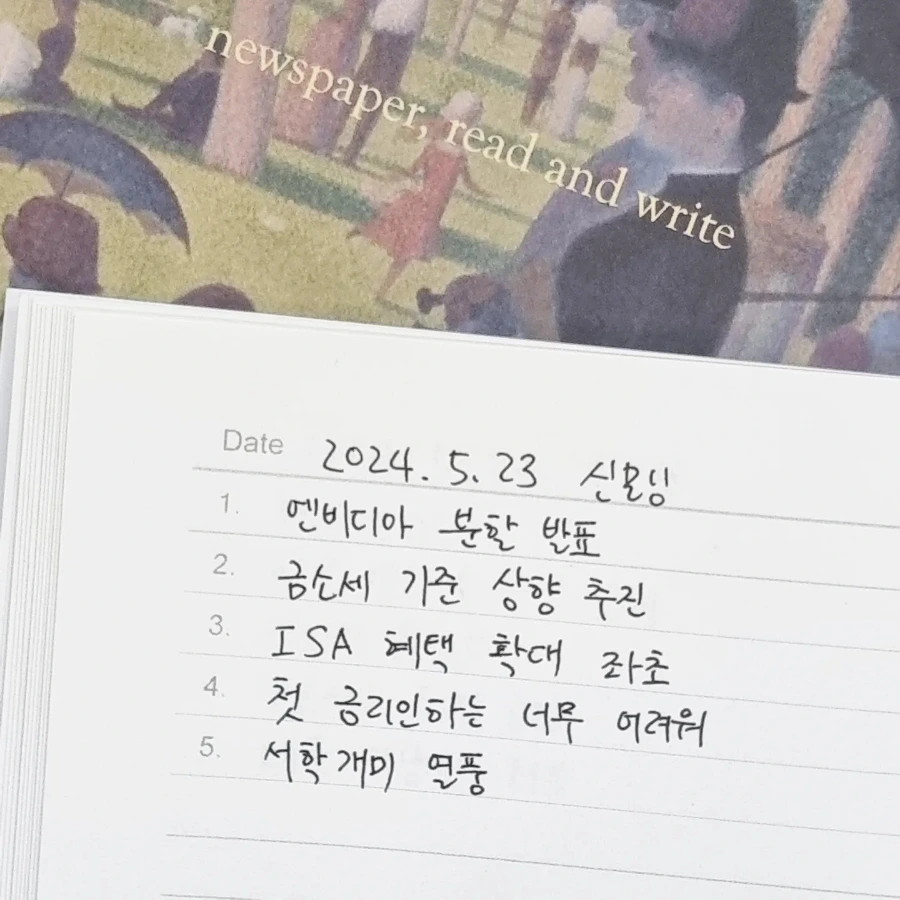 newspaper, read and write
Date 2024. 5. 23 신모닝
1. 엔비디아 분할 발표
2. 금소세 기준 상향 추진
3. ISA 혜택 확대 좌초
4. 첫 금리인하는 너무 어려워
5. 서학개미 열풍